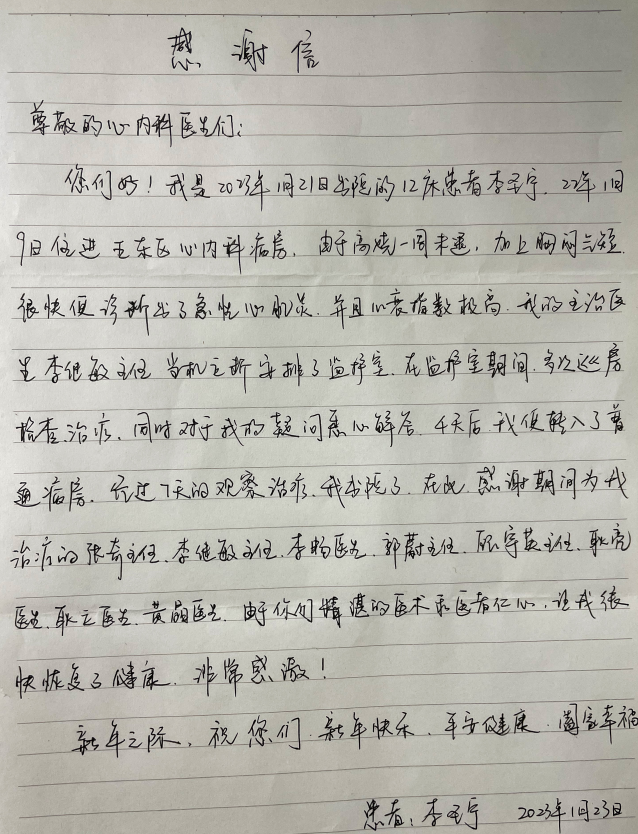 感谢信
尊敬的心内科医生们:
您们好！我是2023年1月21日出院的12床患者李玉宁.22年1月
9日住进王东区心内科病房,由于高烧一周未退,加上胸闷气短.
很快便诊断出了急性心肌炎.并且心衰指数极高.我的主治医
生李继敏主任当机立断安排了监护室.在监护室期间.多次巡房
检查治疗.同时对于我的疑问悉心解答.4天后我便转入了普
通病房.经过7天的观察治疗.我出院了.在此.感谢期间为我
治疗的张奇主任.李继敏主任.李畅医生.郭蔚主任.宇英主任.耿亮
医生.耿立医生.黄晶医生.由于你们精湛的医术和医者仁心.让我很
快恢复了健康.非常感激！
新年之际,祝您们.新年快乐.平安健康.阖家幸福
患者:李玉宁 2023年1月23日